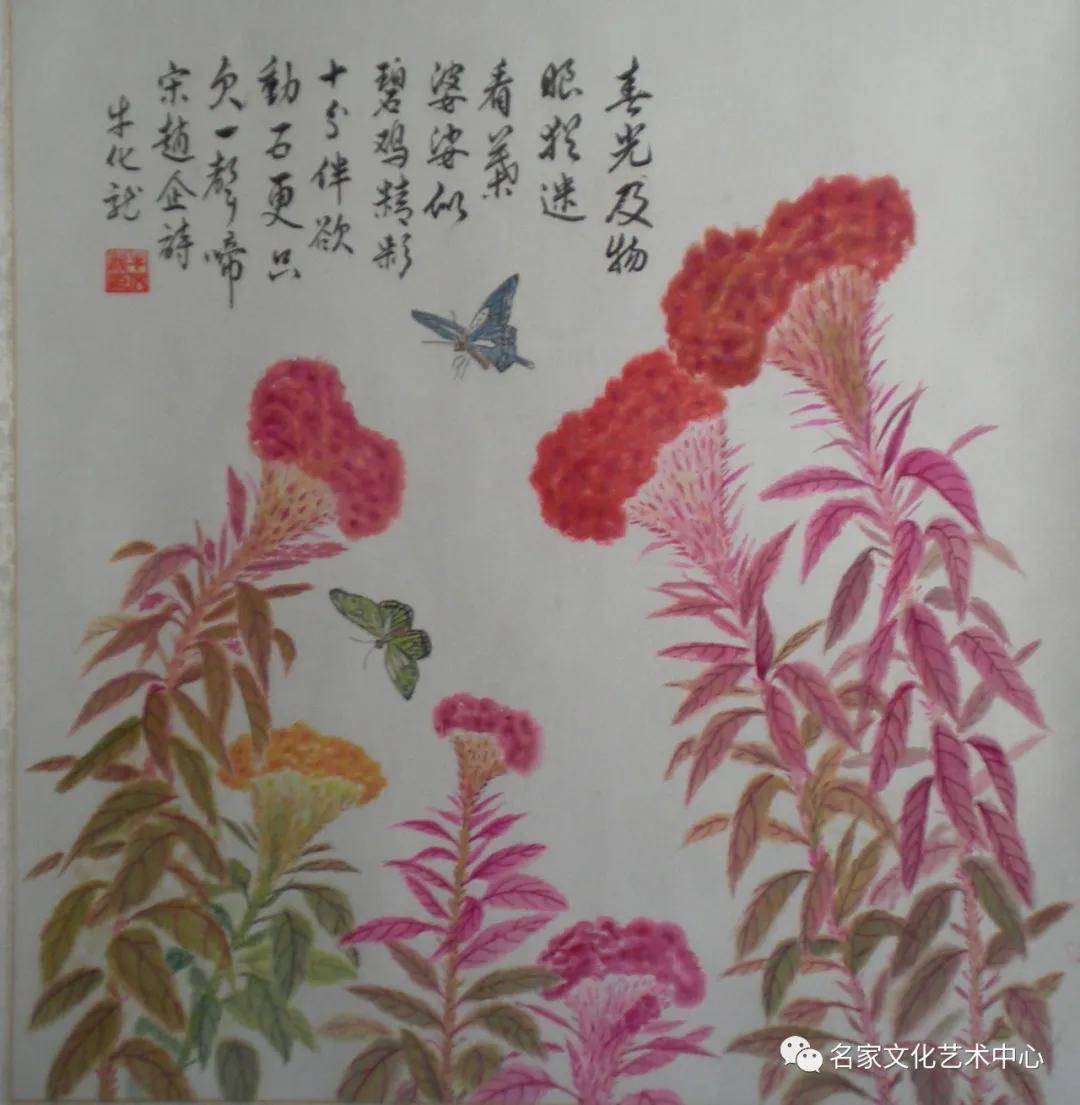 春光及物
眼犹迷
着葉
婆娑似
碧鸡精彩
十分伴欲
動五更只
欠一聲啼
宋趙企詩
牛化龍
名家文化艺术中心